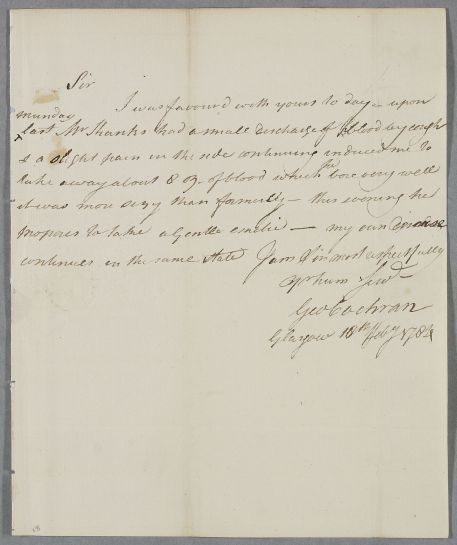 Sir
I was favour'd with yours to day – upon
munday
last Mr Shanks had a small discharge of blood by cough
& a slight pain in the side continuing induced me to
take away about 8 oz. of blood which he bore very well
it was more sizy than formerly – this evening he
proposes to take a Gentle emetic – my own disease
continues in the same State I am Sir most respectfully
yr hum Servt
Geo Cochran
Glasgow 18th Feby 1784